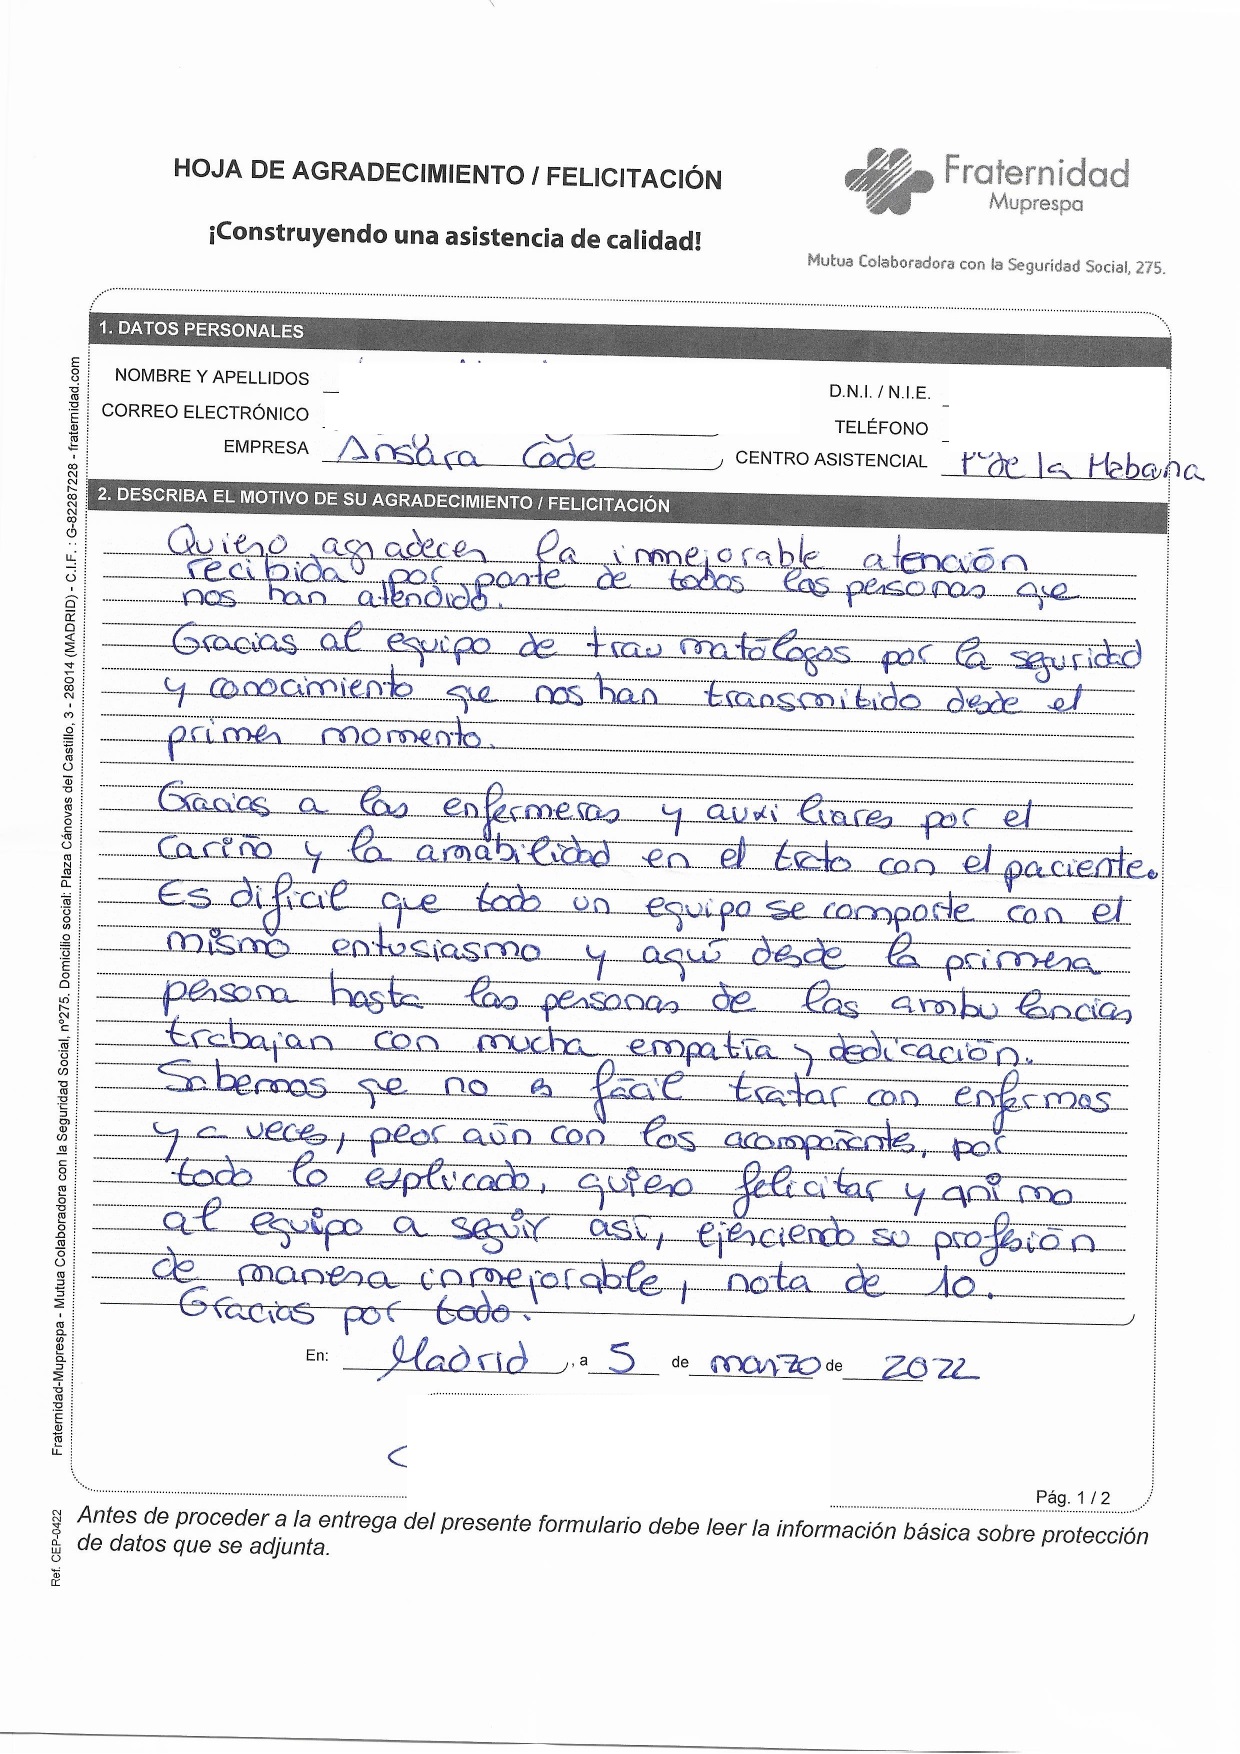 HOJA DE AGRADECIMIENTO / FELICITACIÓN
¡Construyendo una asistencia de calidad!
Fraternidad
Muprespa
Mutua Colaboradora con la Seguridad Social, 275.
1. DATOS PERSONALES
NOMBRE Y APELLIDOS
D.N.I. / N.I.E.
CORREO ELECTRÓNICO
TELÉFONO
EMPRESA Code CENTRO ASISTENCIAL de la Habana
2. DESCRIBA EL MOTIVO DE SU AGRADECIMIENTO / FELICITACIÓN
Quiero agradecer la inmejorable atención
recibida por parte de todos las personas que
nos han atendido.
Gracias al equipo de traumatólogos por la seguridad
y conocimiento que nos han transmitido desde el
primer momento.
Gracias a las enfermeras y auxiliares por el
cariño y la amabilidad en el trato con el paciente.
Es dificil que todo un equipo se comporte con el
mismo entusiasmo y aquí desde la primera
persona hasta las personas de las ambulancias
trabajan con mucha empatía y dedicación.
Sabemos que no es fácil tratar con enfermos
y a veces, peor aún con los acompañantes, por
todo lo explicado, quiero felicitar y animo
al equipo a seguir así, ejerciendo su profesión
de manera inmejorable, nota de 10.
Gracias por todo.
En: Madrid, a 5 de marzo de 2022
Pág. 1 / 2
Antes de proceder a la entrega del presente formulario debe leer la información básica sobre protección
de datos que se adjunta.
Fraternidad-Muprespa - Mutua Colaboradora con la Seguridad Social, nº275. Domicilio social: Plaza Cánovas del Castillo, 3 - 28014 (MADRID) - C.I.F. : G-82287228 - fraternidad.com
Ref. CEP-0422